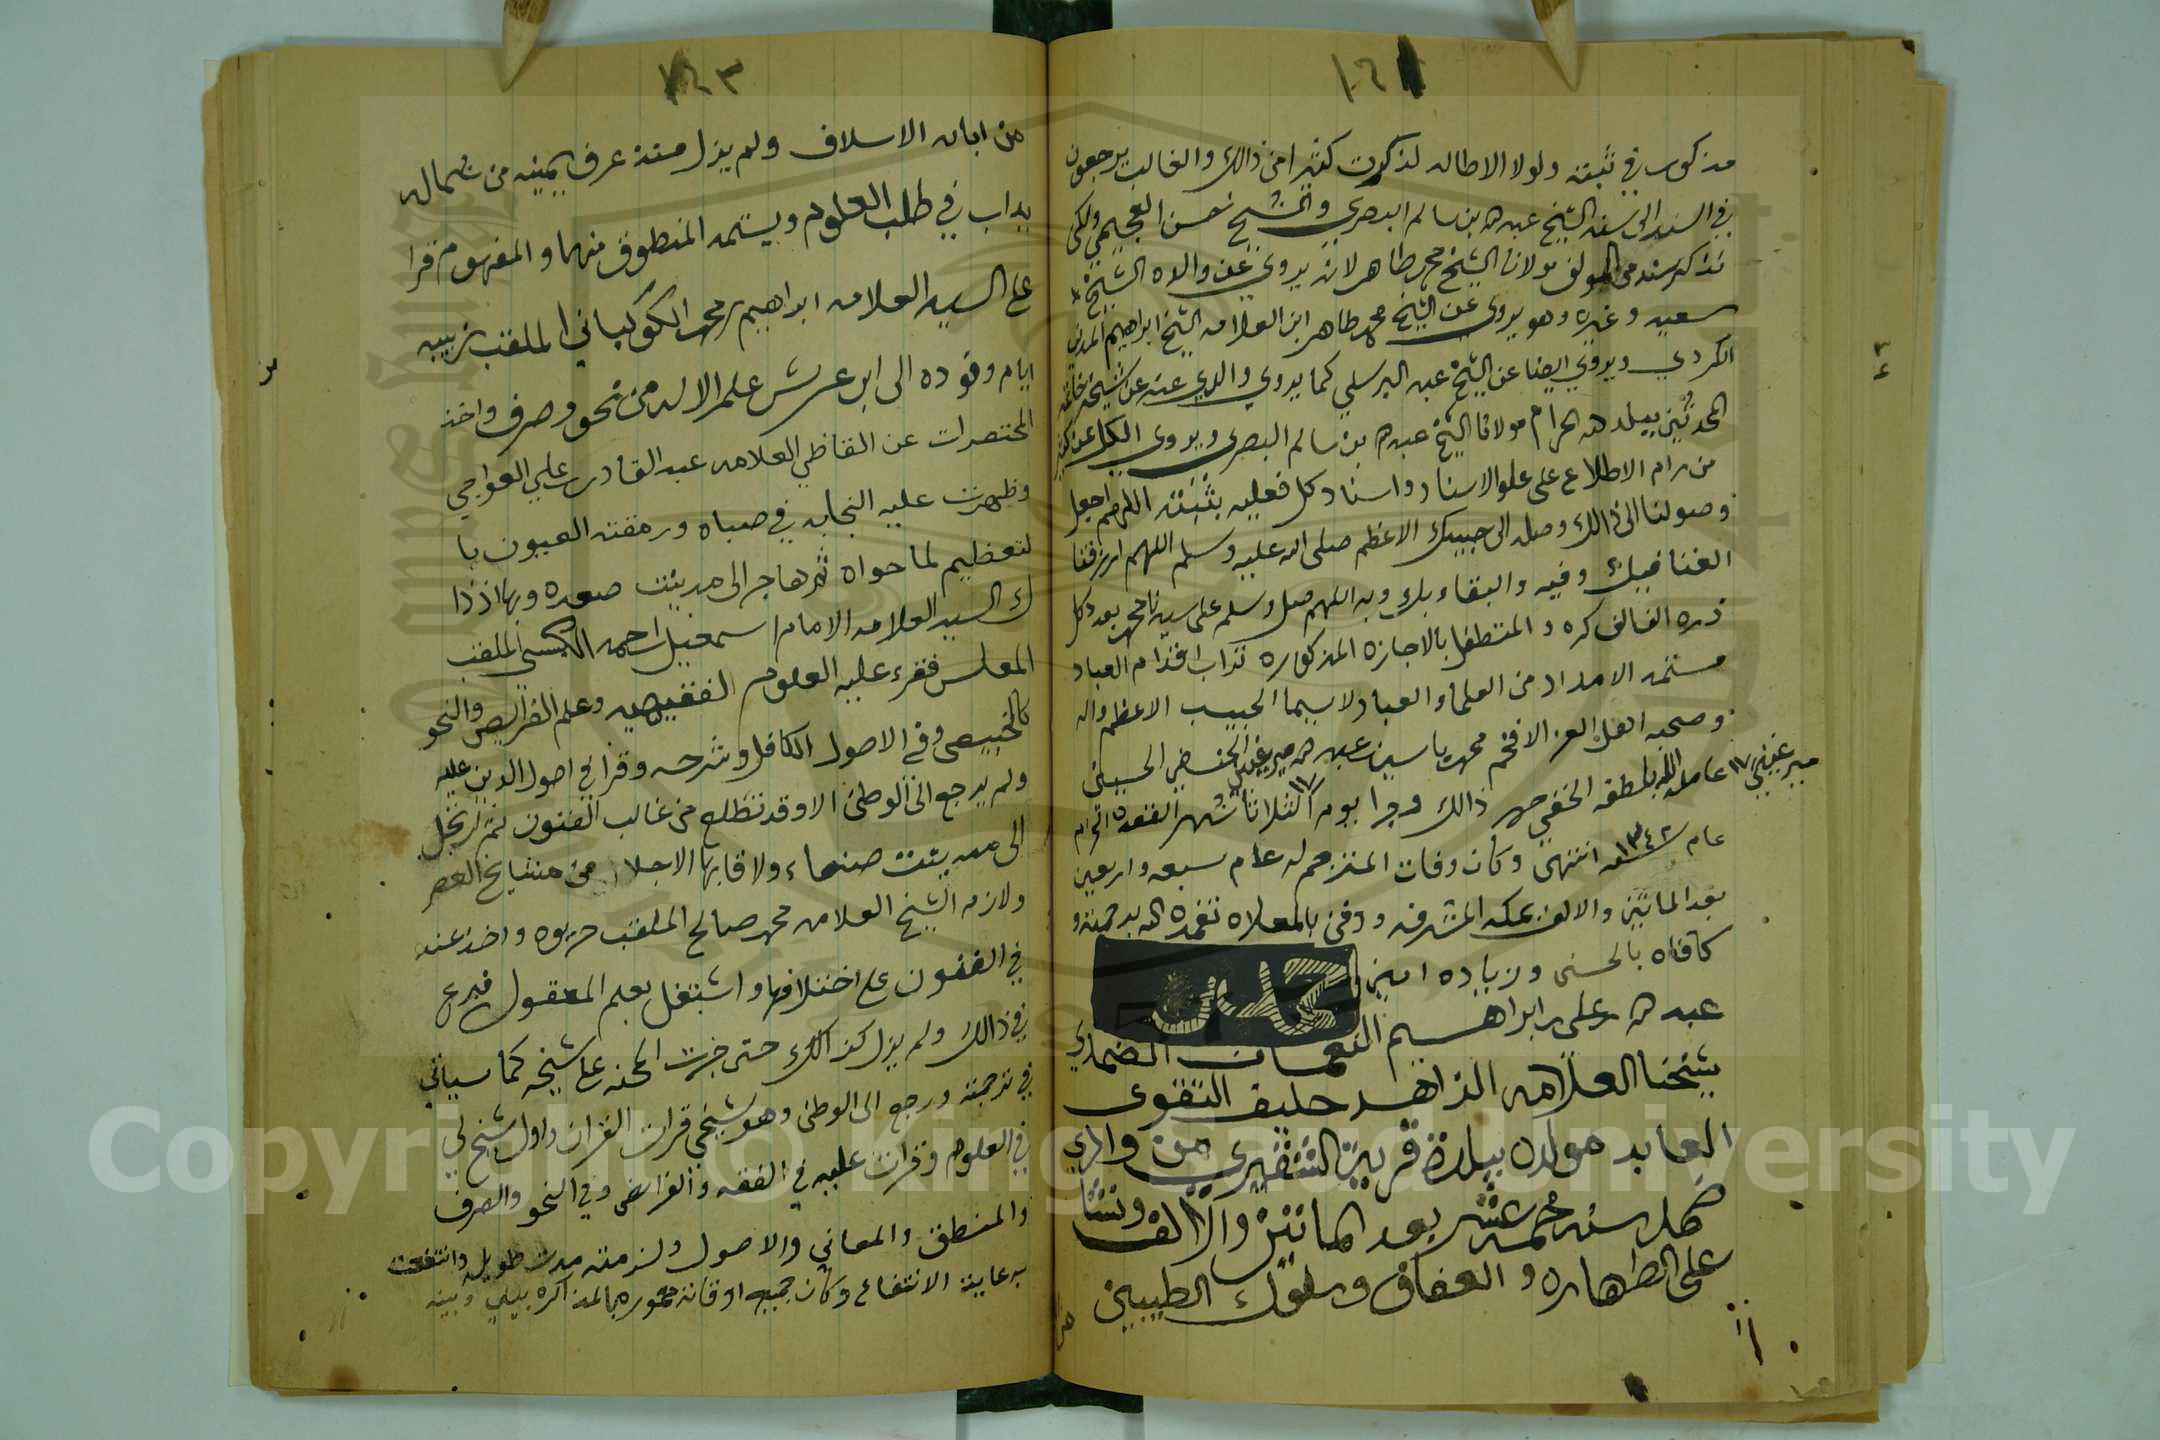 ١٤٢
مذكور في ثبته ولولا الاطاله لذكرت كثيرا من ذالك والغالب يرجعون
في السند الى سند الشيخ عبد الله بن سالم البصري والشيخ حسن العجيمي ولكن
نذكر سندى المولف مولانا الشيخ محمد طاهر لانه يروي عن والده الشيخ
سعيد وغيره وهو يروي عن الشيخ محمد طاهر ابن العلامه الشيخ ابراهيم المدني
الكردي ويروي ايضا عن الشيخ عيد البرسلي كما يروي والدي عنه عن شيخه خاتمة
المحدثين ببلد الله الحرام مولانا الشيخ عبد الله بن سالم البصري ويروي الكل عن
من رام الاطلاع على علو الاسناد واسناد كل فعليه بثبته اللهم اجعل
وصولنا الى ذالك وصله الى حبيبك الاعظم صلى الله عليه وسلم اللهم ارزقنا
الفنا فيك وفيه والبقاء بك وبه اللهم صل وسلم على سيدنا محمد بعدد كل
ذره الف الف كره والمتطفل بالاجازه المذكوره تراب اقدام العباد
مستمد الامداد من العلما والعباد لاسيما الحبيب الاعظم واله
وصحبه اهل العز الافخم محمد ياسين عبد الله ميرغني الحنفي الحسيني
ميرغني عامله الله بلطفه الخفي حرر ذالك وجرا يوم الثلاثا ١٧ شهر القعده الحرام
عام ١٢٤٢ سنه انتهى وكان وفات المترجم له عام سبعه واربعين
بعد الماتين والالف بمكه المشرفه ودفن بالمعلاه تغمده الله برحمته و
كافاه بالحسنى وزياده امين
عبد الله بن علي بن ابراهيم النعمان الضمدي
شيخنا العلامه الزاهد حليف التقوى
العابد مولده ببلدة قرية الشقيري من وادي
ضمد سنه خمسه عشر بعد الماتين والالف ونشا
على الطهاره والعفاف وسلوك الطيبين
من
١٤٣
من ابائه الاسلاف ولم يزل منذ عرف يمينه من شماله
يداب في طلب العلوم ويستمد المنطوق منها والمفهوم قرا
على السيد العلامه ابراهيم بن محمد الكوكباني الملقب زبيبه
ايام وفوده الى ابي عريش علم الاله من نحو وصرف واخذ
المختصرات عن القاظي العلامه عبد القادر بن علي العواجي
وظهرت عليه النجابه في صباه ورمقته العيون با
لتعظيم لما حواه ثم هاجر الى مدينت صعده وبها اذ ذا
ك السيد العلامه الامام اسمعيل احمد الكبسي الملقب
المغلس فقرء عليه العلوم الفقيهيه وعلم الفرايض والنحو
كالخبيصي وفي الاصول الكافل وشرحه وقرا في اصول الدين عليه
ولم يرجع الى الوطن الا وقد تظلع من غالب الفنون ثم ارتحل
الى مدينت صنعاء ولاقا بها الاجلا من مشايخ العصر
ولازم الشيخ العلامه محمد صالح الملقب حريوه واخذ عنه
في الفنون على اختلافها واشتغل بعلم المعقول فبرع
في ذالك ولم يزل كذالك حتى جرت المحنه على شيخه كما سياتي
في ترجمته ورجع الى الوطن وهو شيخي قرات القران واول شيخ لي
في العلوم وقرات عليه في الفقه والفرايض وفي النحو والصرف
والمنطق والمعاني والاصول ولزمته مدت طويله وانتفعت
به غاية الانتفاع وكان جميع اوقاته معموره بالمذاكره بيني وبينه